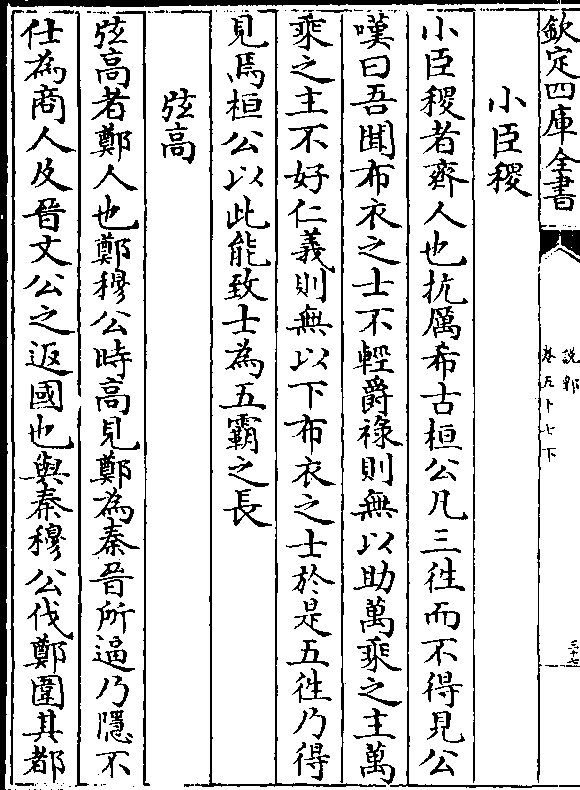 欽定四庫全書
說郛
卷五十七下
三十七
小臣稷
小臣稷者齊人也抗厲希古桓公凡三徃而不得見公
嘆曰吾聞布衣之士不輕爵祿則無以助萬乘之主萬
乘之主不好仁義則無以下布衣之士於是五徃乃得
見焉桓公以此能致士為五霸之長
弦高
弦高者鄭人也鄭穆公時高見鄭為秦晉所逼乃隱不
仕為商人及晉文公之返國也與秦穆公伐鄭圍其都